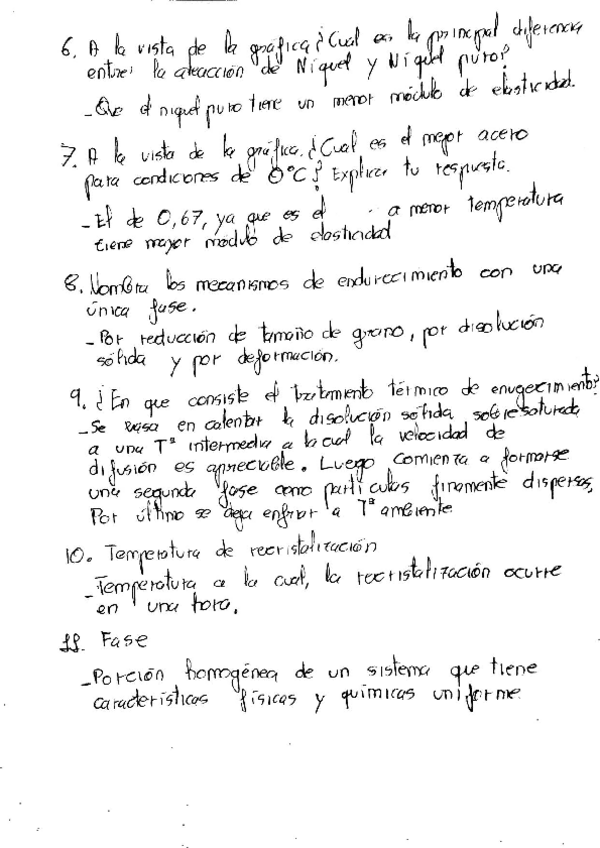 6. A la vista de la gráfica ¿Cual es la principal diferencia
entre: la aleacción de Níquel y Níquel puro?
- Que el niquel puro tiene un menor módulo de elasticidad.
7. A la vista de la gráfica. ¿Cual es el mejor acero
para condiciones de 0°C? Explicar tu respuesta.
- El de 0,67, ya que es el a menor temperatura
tiene mayor modulo de elasticidad
8. Nombra los mecanismos de endurecimiento con una
única fase.
- Por reducción de tamaño de grano, por disolución
sólida y por deformación.
9. ¿En que consiste el tratamiento térmico de envegecimiento?
- Se basa en calentar la disolución sólida sobresaturada
a una Tª intermedia a la cual la velocidad de
difusión es apreciable. Luego comienza a formarse
una segunda fase como partículas finamente dispersas,
Por último se deja enfriar a Tª ambiente
10. Temperatura de recristalización
- Temperatura a la cual, la recristalización ocurre
en una hora.
11. Fase
- Porción homogénea de un sistema que tiene
características físicas y químicas uniforme